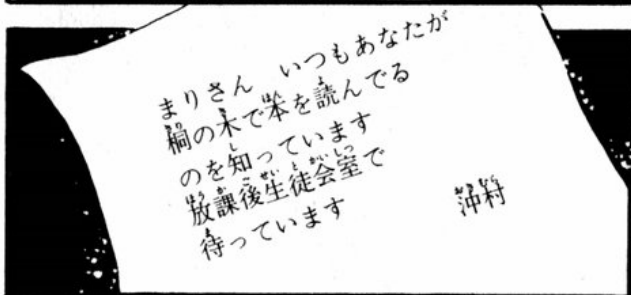 まりさん　いつもあなたが
桐の木で本を読んでる
のを知っています
放課後生徒会室で
待っています
沖村